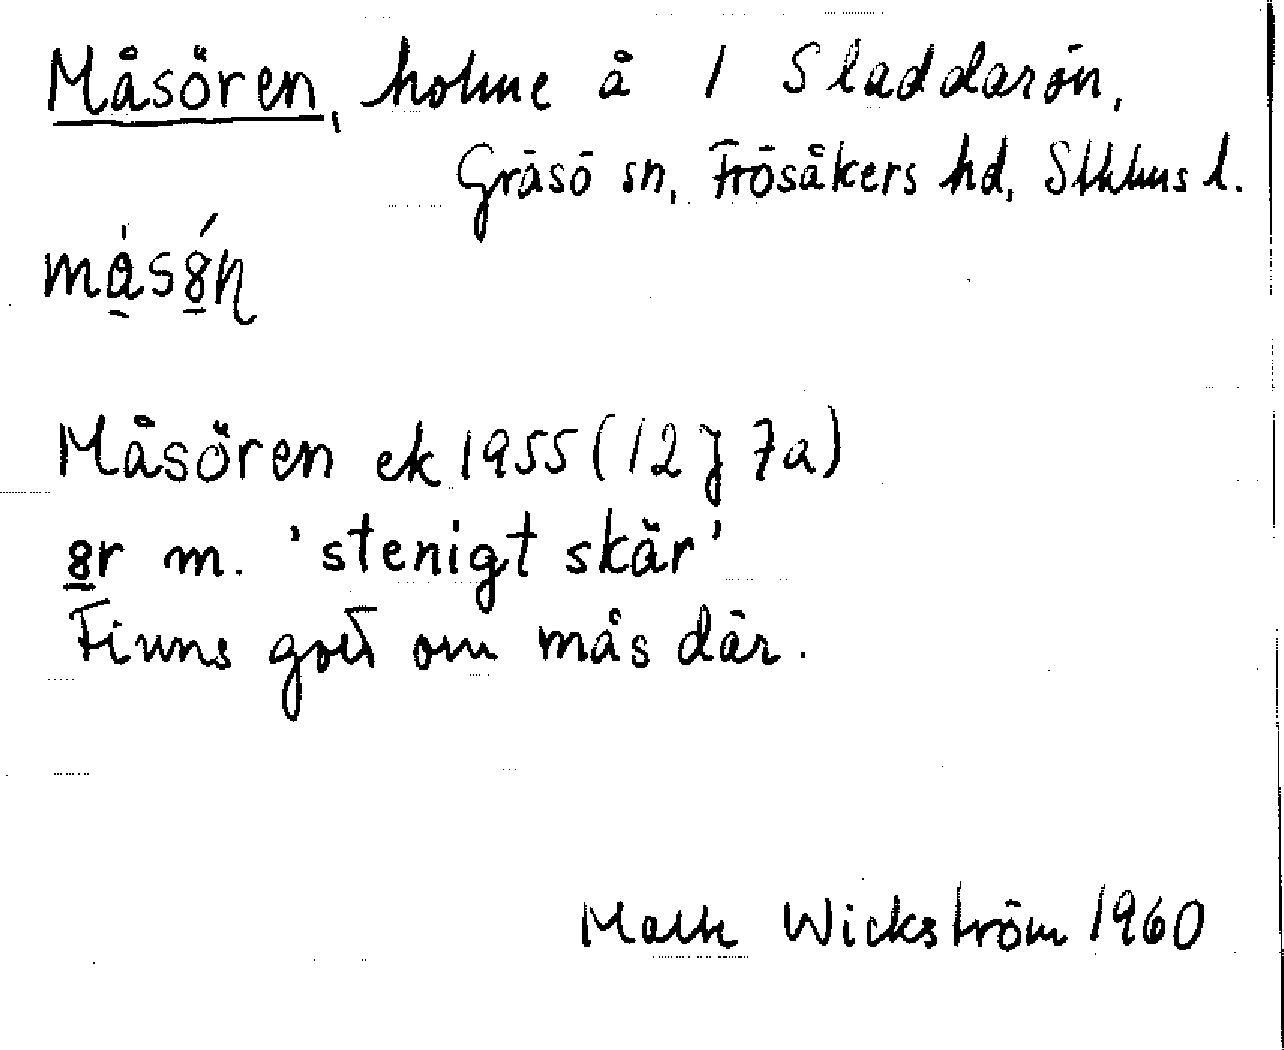 Måsören, holme å 1 Sladdarön,
Gräsö sn, Frösåkers hd, Stkhms l.
Måsören ek 1955 (12 J 7a)
8r m. 'stenigt skär'
Finns gott om mås där.
Wickström 1960